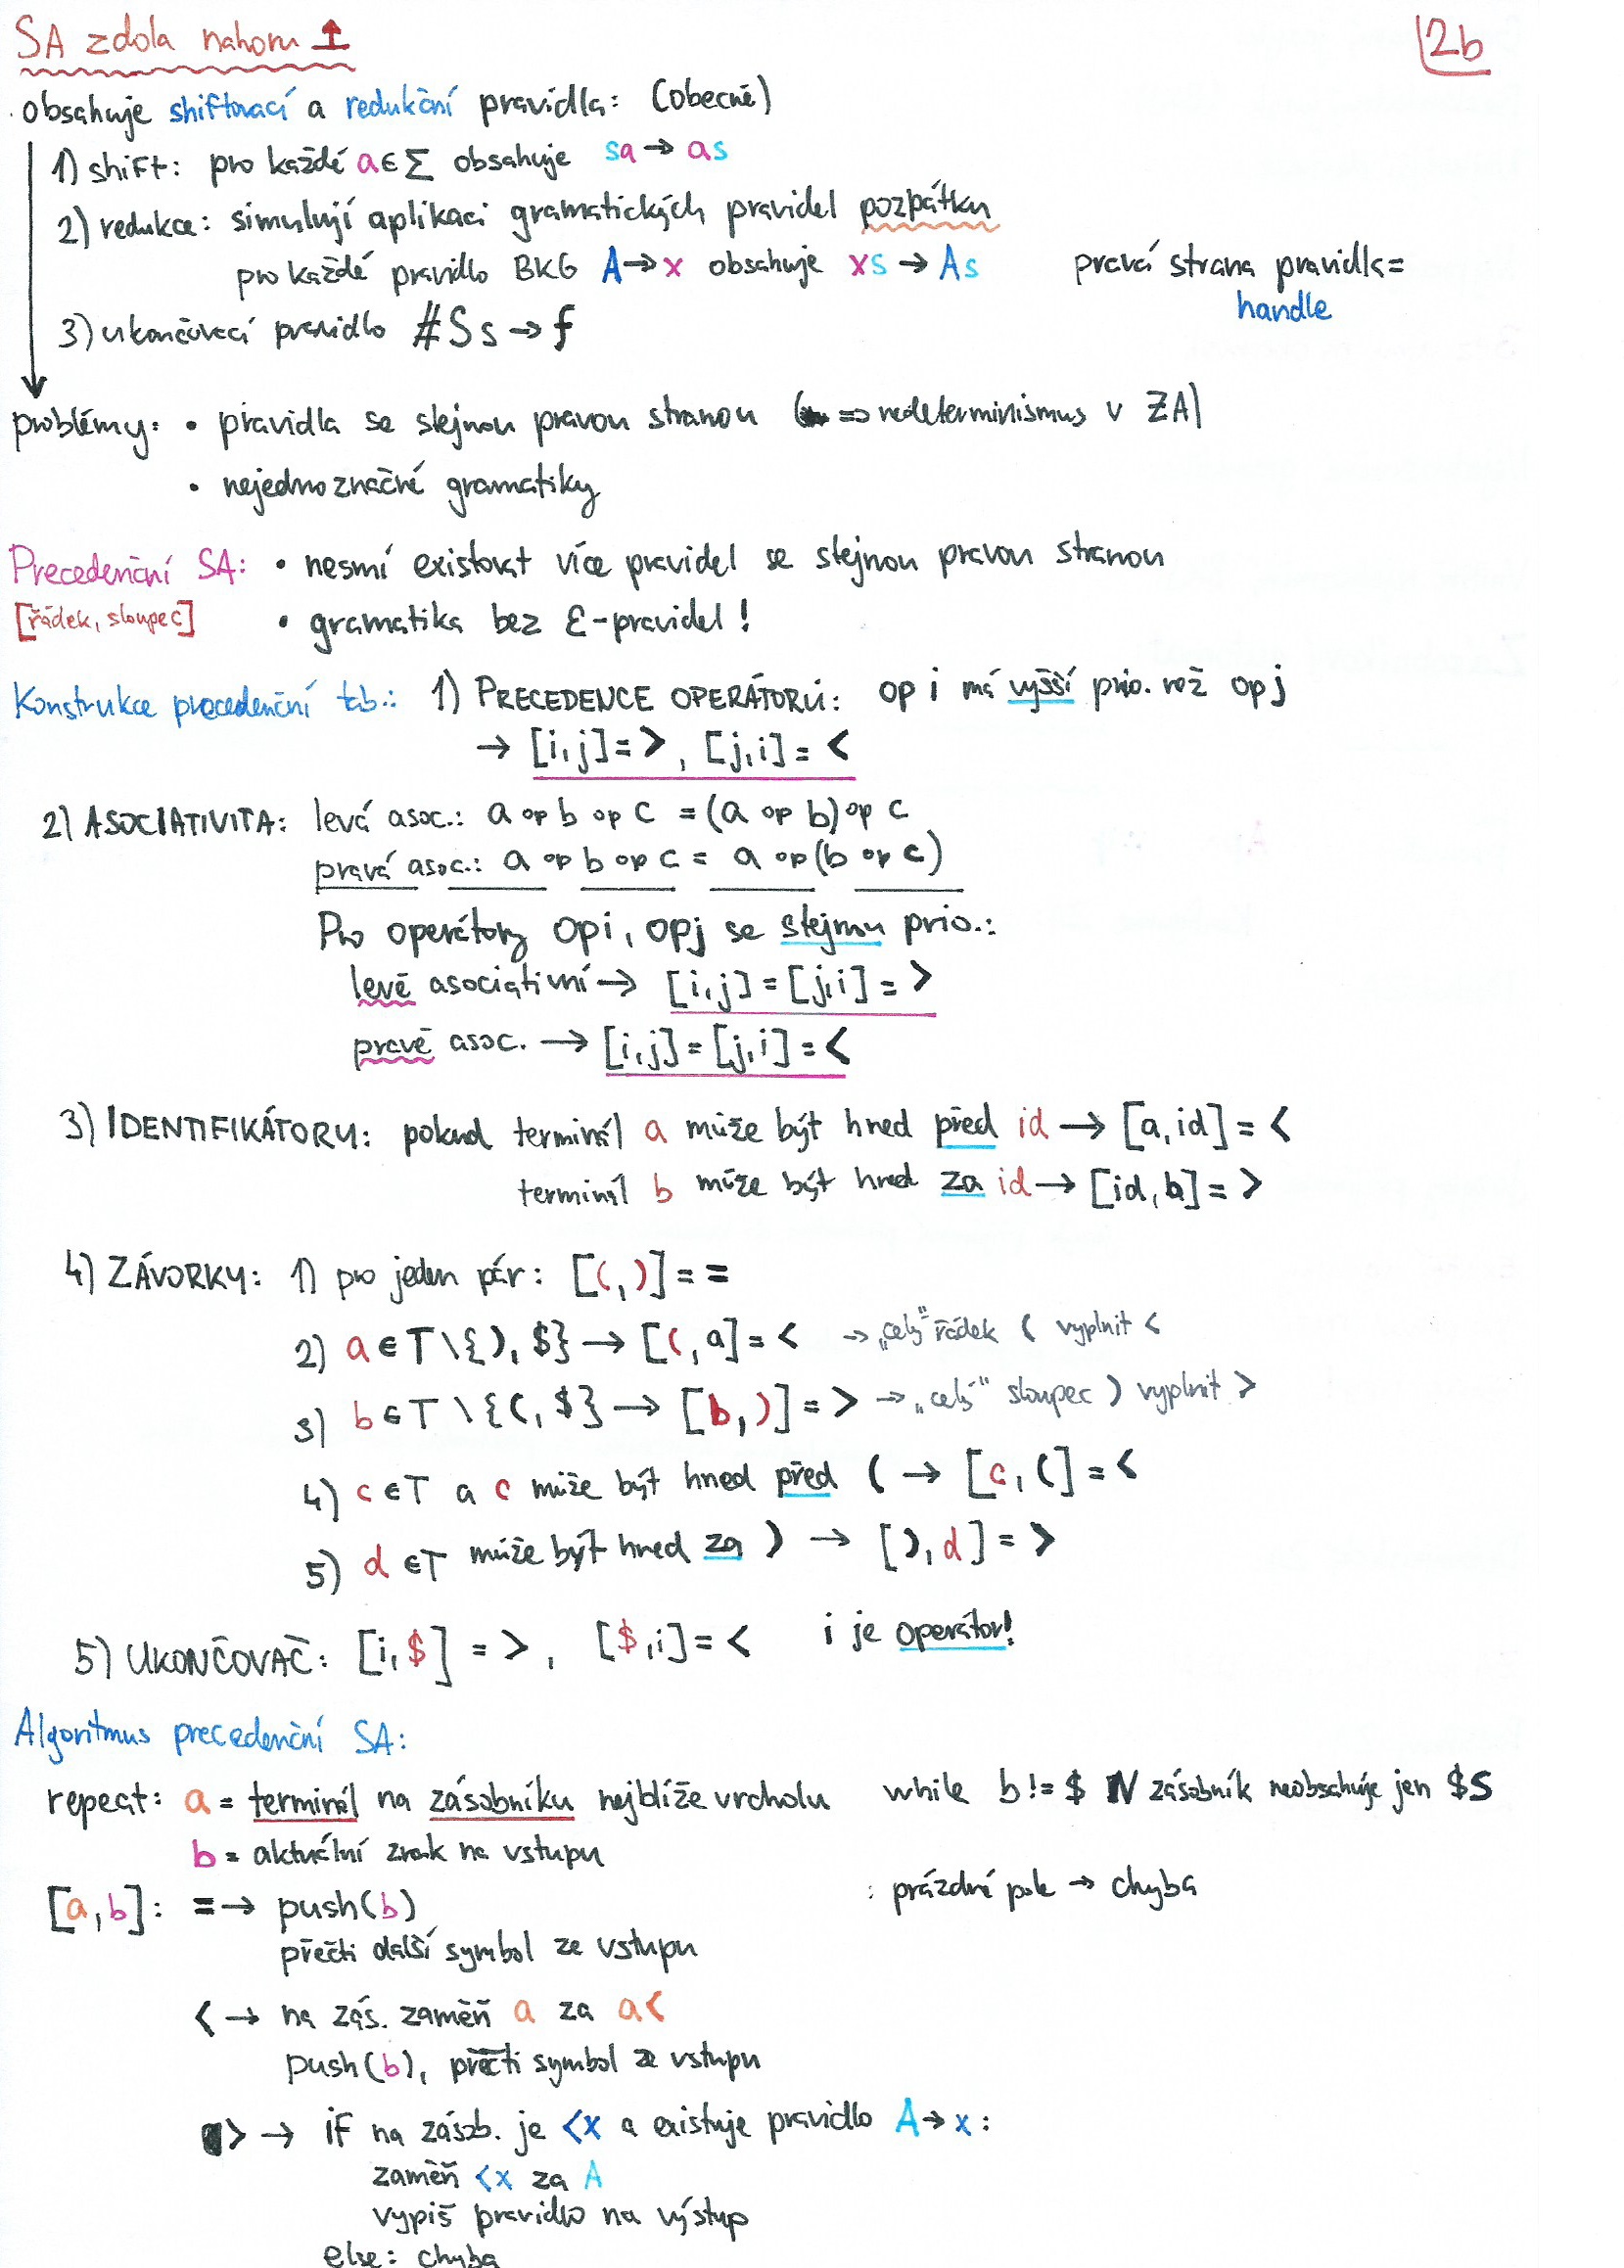 SA zdola nahoru ↑
2b
obsahuje shiftovací a redukční pravidla: (obecně)
1) shift: pro každé a∈Σ obsahuje sa → as
2) redukce: simulují aplikaci gramatických pravidel pozpátku
pro každé pravidlo BKG A→x obsahuje xs → As
pravá strana pravidla =
handle
3) ukončovací pravidlo #Ss → f
problémy: • pravidla se stejnou pravou stranou ( ⇒ nedeterminismus v ZA)
• nejednoznačné gramatiky
Precedenční SA: • nesmí existovat více pravidel se stejnou pravou stranou
[řádek, sloupec] • gramatika bez ε-pravidel!
Konstrukce precedenční tab.: 1) PRECEDENCE OPERÁTORŮ: op i má vyšší prio. než op j
→ [i,j] = >, [j,i] = <
2) ASOCIATIVITA: levá asoc.: a op b op c = (a op b) op c
pravá asoc.: a op b op c = a op (b op c)
Pro operátory opi, opj se stejnou prio.:
levě asociativní → [i,j] = [j,i] = >
pravě asoc. → [i,j] = [j,i] = <
3) IDENTIFIKÁTORY: pokud terminál a může být hned před id → [a,id] = <
terminál b může být hned za id → [id,b] = >
4) ZÁVORKY: 1) pro jeden pár: [(,)] = =
2) a∈T\{),$} → [(,a] = < → „celý" řádek ( vyplnit <
3) b∈T\{(,$} → [b,)] = > → „celý" sloupec ) vyplnit >
4) c∈T a c může být hned před ( → [c,(] = <
5) d∈T může být hned za ) → [),d] = >
5) UKONČOVAČ: [i,$] = >, [$,i] = < i je operátor!
Algoritmus precedenční SA:
repeat: a = terminál na zásobníku nejblíže vrcholu while b != $ ∨ zásobník neobsahuje jen $S
b = aktuální znak na vstupu
[a,b]: = → push(b)
: prázdné pole → chyba
přečti další symbol ze vstupu
< → na zás. zaměň a za a<
push(b), přečti symbol ze vstupu
> → if na zásob. je <x a existuje pravidlo A→x:
zaměň <x za A
vypiš pravidlo na výstup
else: chyba